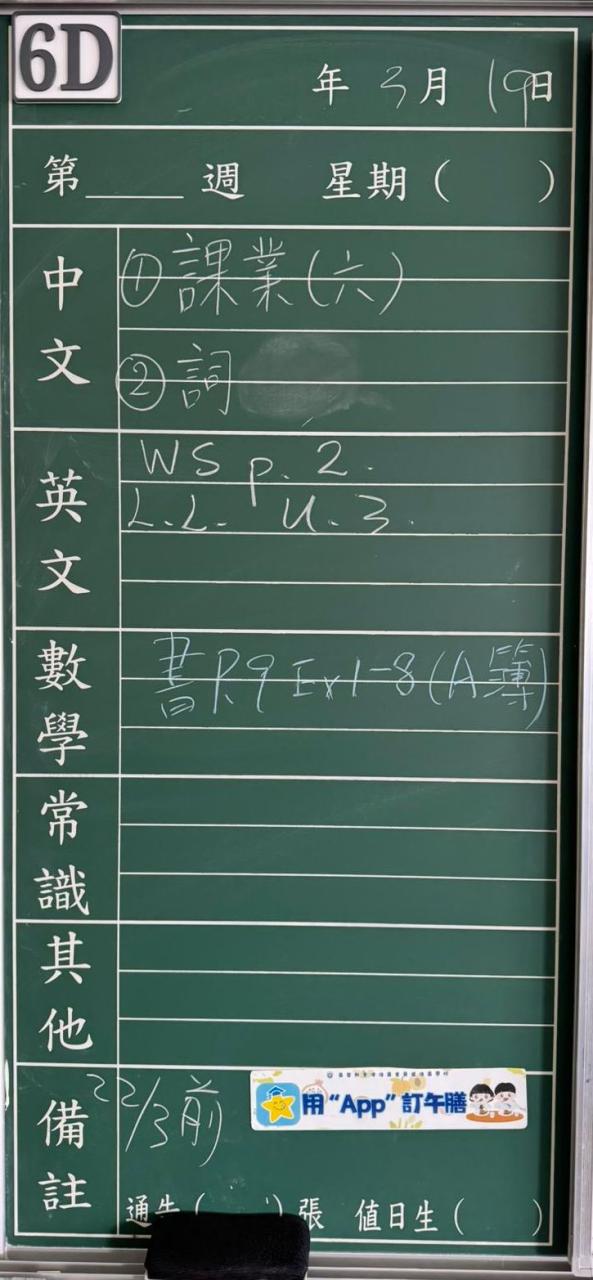 6D
年 3月 19日
第 週 星期( )
中文
① 課業(六)
② 詞
英文
WS p. 2.
L.L. U.3.
數學
書 P.9 Ex 1-8 (A簿)
常識
其他
備註
22/3前
用“App”訂午膳
通告( )張 值日生( )